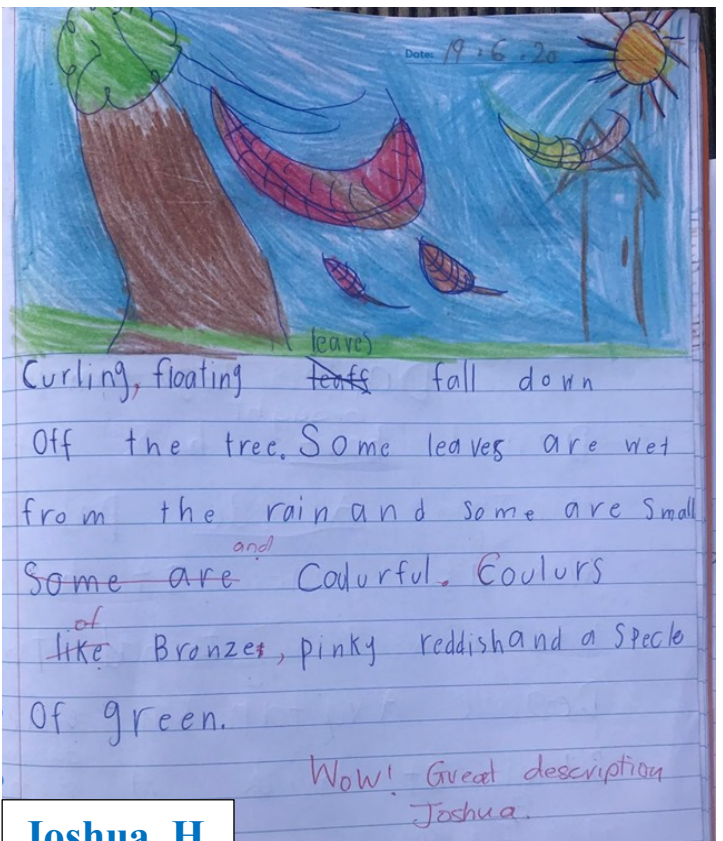 Date: 19.6.20
leaves
Curling, floating leafs fall down
Off the tree. Some leaves are wet
from the rain and some are small
and
Some are Coulurful. Coulurs
of
like Bronzes, pinky reddish and a Specle
Of green.
Wow! Great description
Joshua.
Joshua H